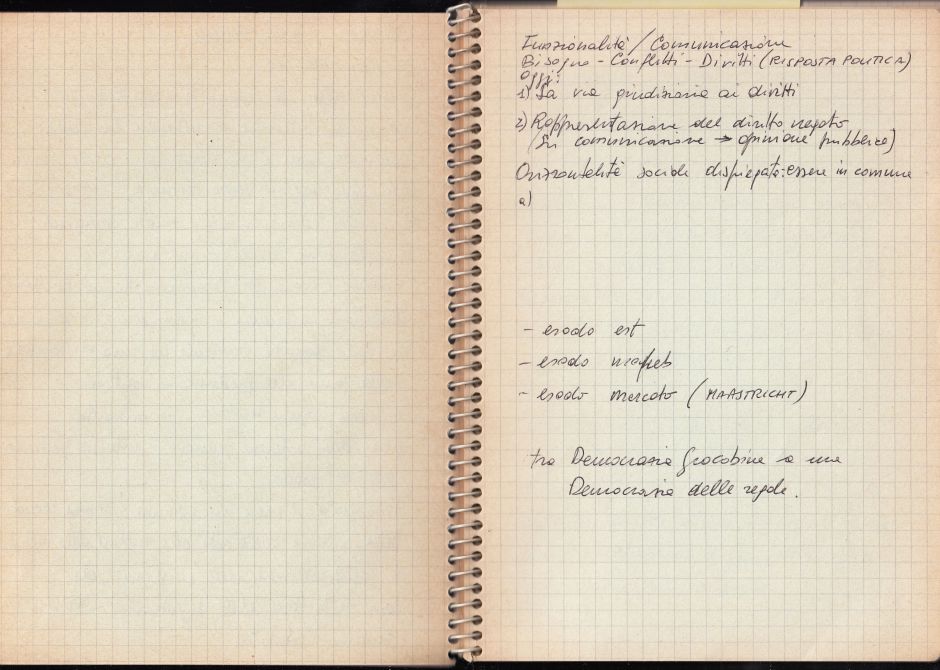 Funzionalità / Comunicazione
Bisogno - Conflitti - Diritti (RISPOSTA POLITICA)
Oggi:
1) La via giudiziaria ai diritti
2) Rappresentazione del diritto negato
(Su comunicazione → opinione pubblica)
Orizzontalità sociale dispiegata: essere in comune
a)
- esodo est
- esodo
- esodo mercato (MAASTRICHT)
tra Democrazia Giacobina a una
Democrazia delle regole.